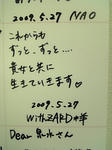 2009.5.27 NAO
これからも
ずっと…ずっと…
貴女と共に
生きていきます
2009.5.27
WithZARD
Dear 泉水さん